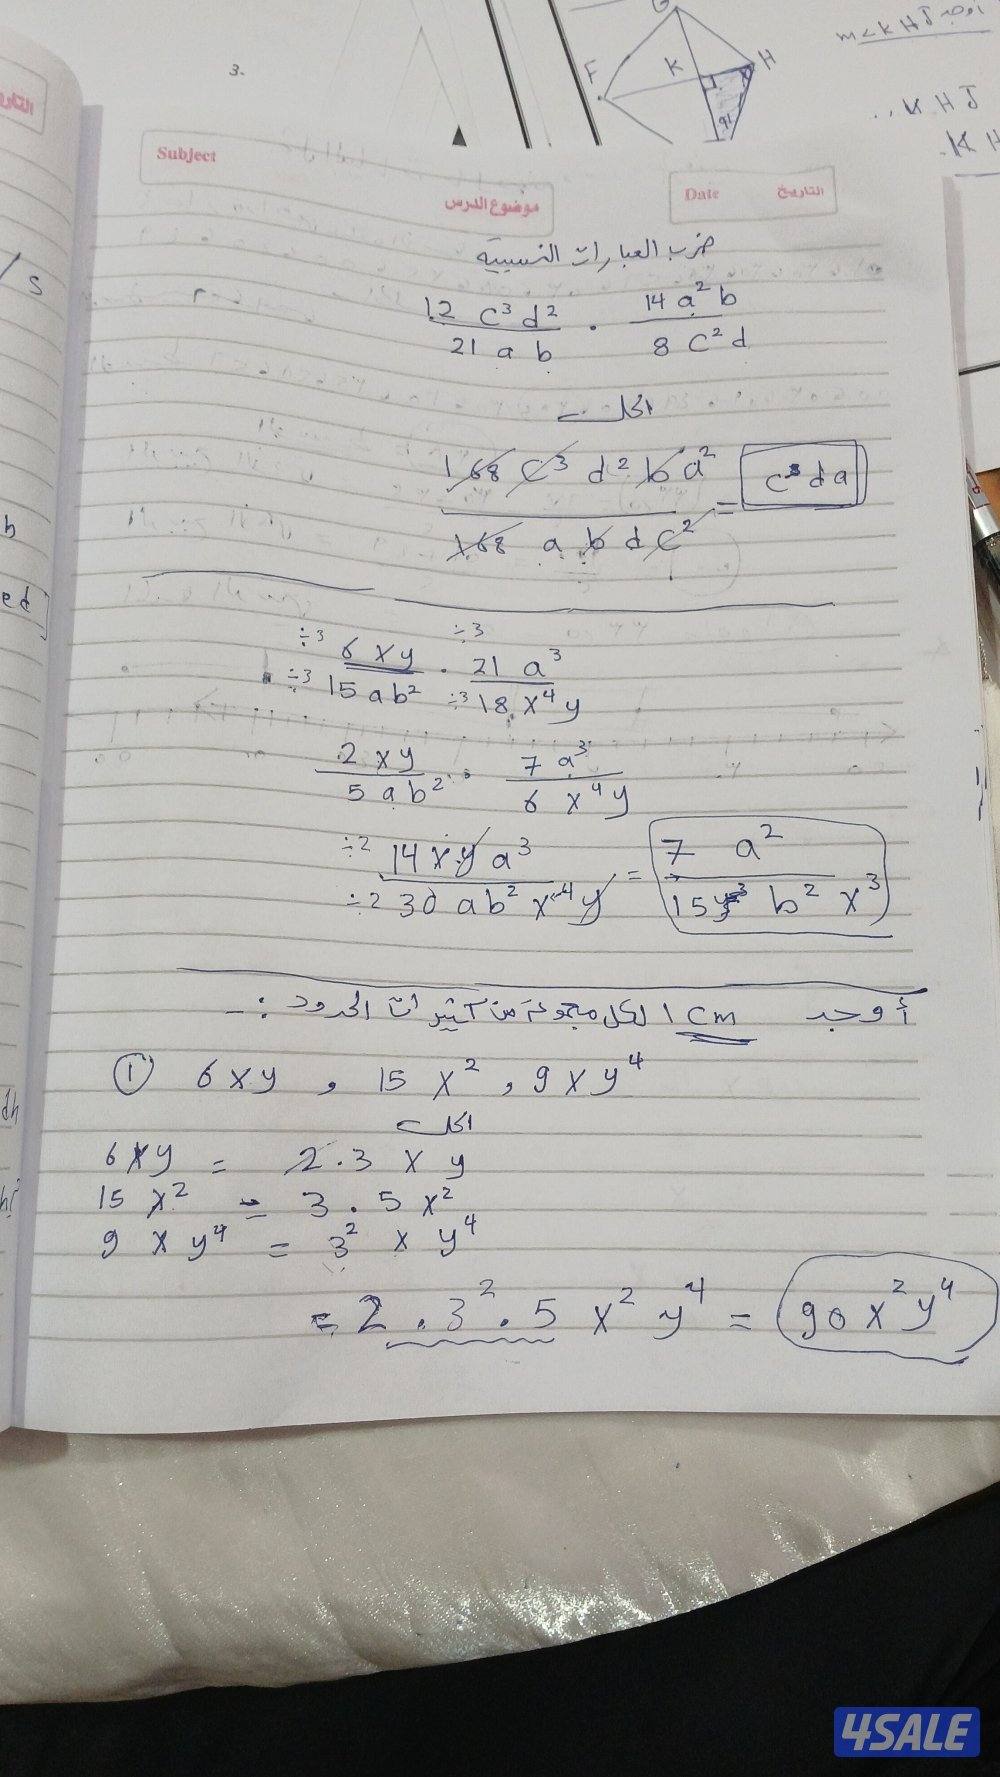 أوجد
m<KHJ
3-
G
F
K
H
KHJ
Subject
موضوع الدرس
Date
التاريخ
ضرب العبارات النسبية
12 c³ d² / 21 a b . 14 a² b / 8 c² d
الحل
168 c³ d² b a² / 168 a b d c² = c d a
÷3 6 x y / ÷3 15 a b² . ÷3 21 a³ / ÷3 18 x⁴ y
2 x y / 5 a b² . 7 a³ / 6 x⁴ y
÷2 14 x y a³ / ÷2 30 a b² x⁴ y = 7 a² / 15 b² x³
أوجد lcm لكل مجموعة من كثيرات الحدود :-
① 6xy , 15 x² , 9 x y⁴
الحل
6xy = 2.3 x y
15 x² = 3 . 5 x²
9 x y⁴ = 3² x y⁴
= 2 . 3² . 5 x² y⁴ = 90 x² y⁴
4SALE